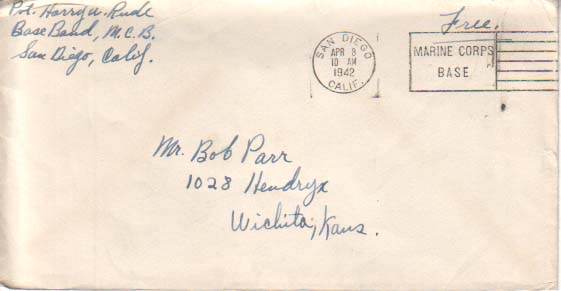 Pvt. Harry W. Rude
Base Band, M.C.B.
San Diego, Calif.
Free.
SAN DIEGO
APR 8
10 AM
1942
CALIF.
MARINE CORPS
BASE
Mr. Bob Parr
1028 Hendryx
Wichita, Kans.